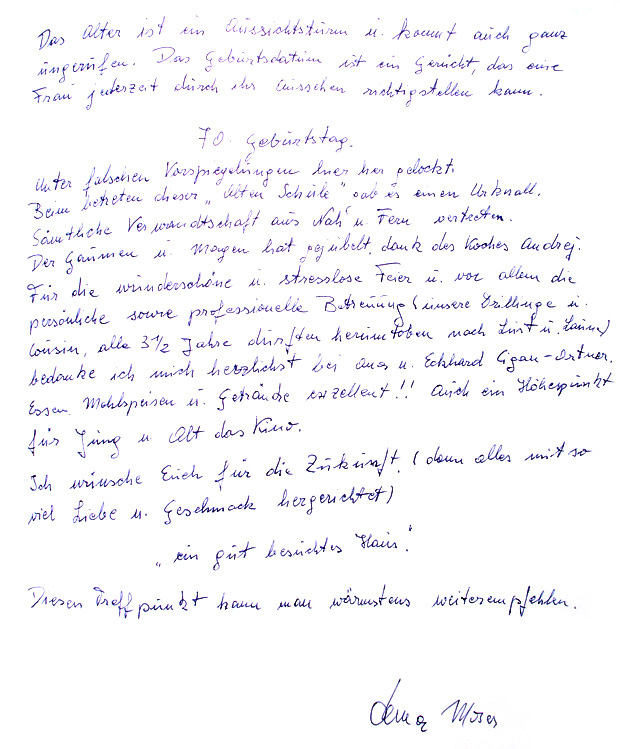 Das Alter ist ein Aussichtsturm u. kommt auch ganz
ungerufen. Das Geburtsdatum ist ein Gerücht, das eine
Frau jederzeit durch ihr Aussehen richtigstellen kann.
70. Geburtstag.
Unter falschen Vorspiegelungen hier her gelockt.
Beim betreten dieser „Alten Schule“, gab es einen Urknall.
Sämtliche Verwandtschaft aus Nah u. Fern vertreten.
Der Gaumen u. Magen hat gejubelt, dank des Koches Andrej.
Für die wunderschöne u. stresslose Feier u. vor allem die
persönliche sowie professionelle Betreuung (unsere Drillinge u.
Cousin, alle 3 1/2 Jahre durften herumtoben nach Lust u. Laune)
bedanke ich mich herzlichst bei u. Eckhard Cigan-Ortner.
Essen, Mehlspeisen u. Getränke exzellent!! Auch ein Höhepunkt
für Jung u. Alt das Kino.
Ich wünsche Euch für die Zukunft, (denn alles mit so
viel Liebe u. Geschmack hergerichtet)
„ein gut besuchtes Haus“.
Diesen Treffpunkt kann man wärmstens weiterempfehlen.
Moser